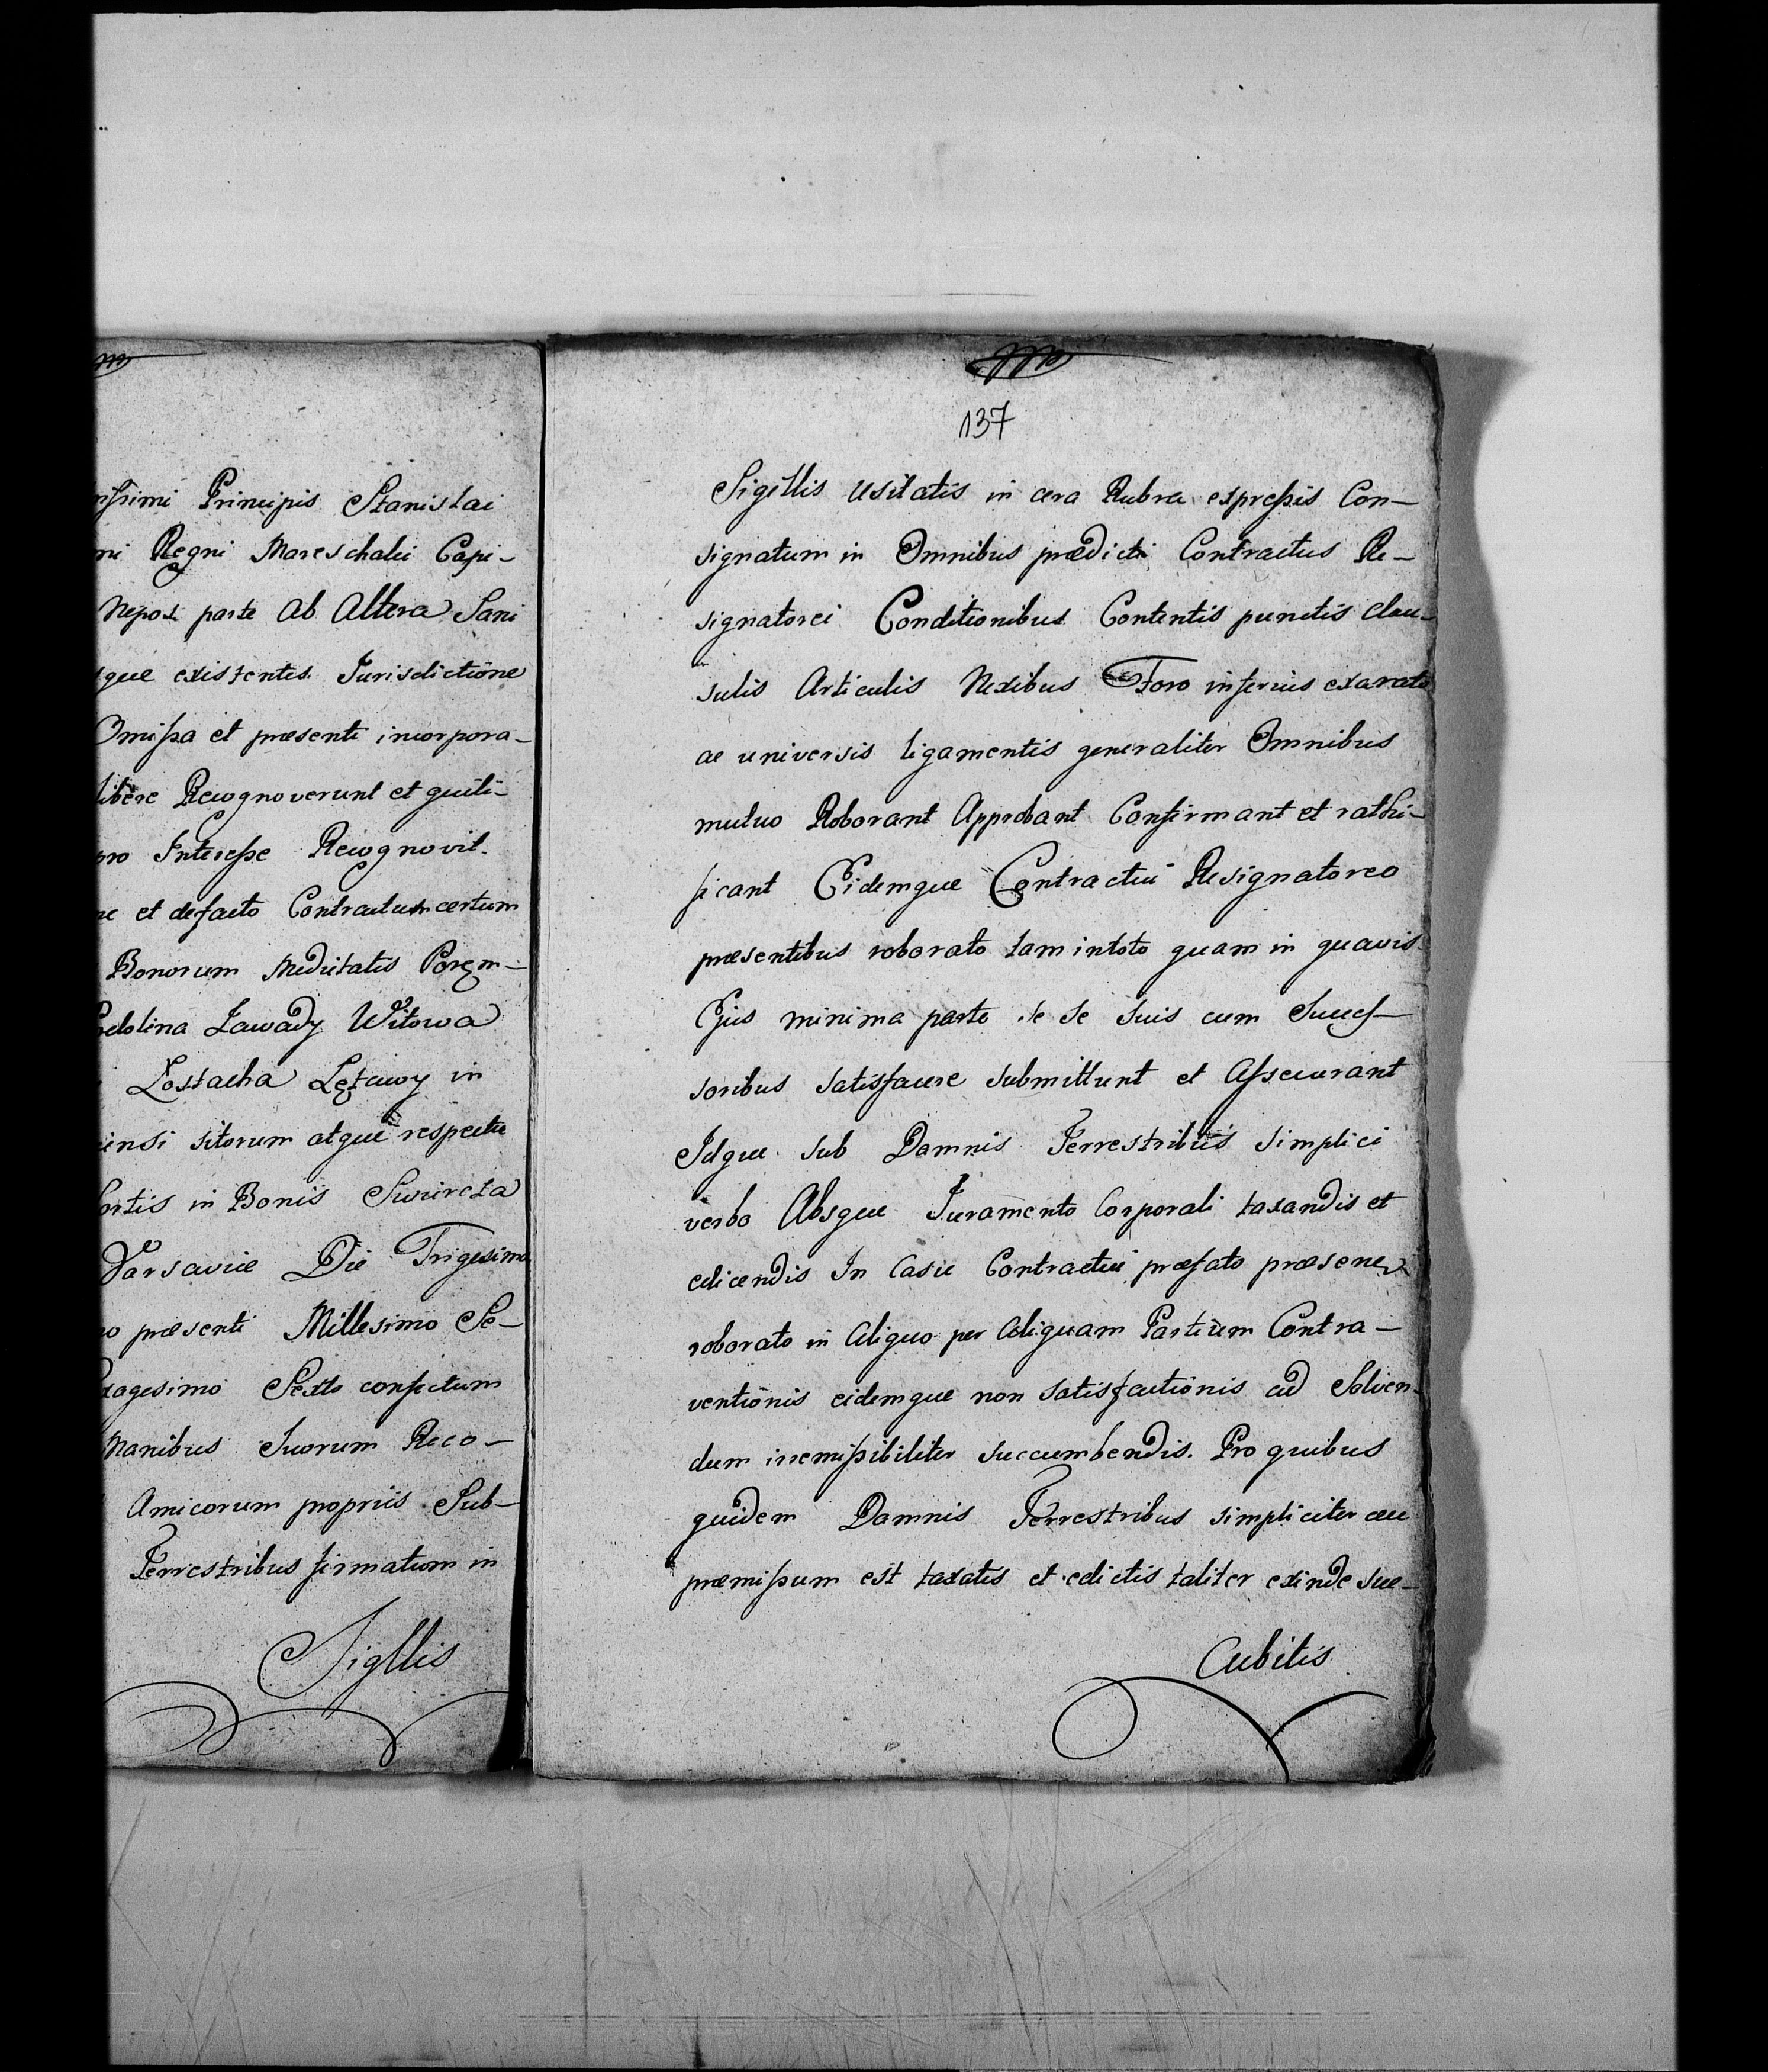 Principis Stanislai
Regni Mareschalci Capi-
Nepos parte ab Altera Sani
existentes Jurisdictione
Omissa et præsenti incorpora-
libere Recognoverunt et
Interesse Recognovit.
et defacto Contractum certum
Bonorum Medietatis Porem-
Zawady Witowa
Łętawy in
sitorum atque respectu
in Bonis
Varsaviæ Die Trigesima
præsenti Millesimo Se-
Sexto confectum
Manibus Suorum Reco-
Amicorum propriis Sub-
Terrestribus firmatum in
Sigllis
137
Sigillis Usitatis in cera Rubra expressis Con-
signatum in Omnibus prædicti Contractus Re-
signatorei Conditionibus Contentis punctis Clau-
sulis Articulis Nexibus Foro inferius exarato
ac universis ligamentis generaliter Omnibus
mutuo Roborant Approbant Confirmant et rathi-
ficant Eidemque Contractui Resignatoreo
præsentibus roborato tam intoto quam in quavis
Ejus minima parte se se suis cum Succes-
soribus satisfacere submittunt et Assecurant
Idque sub Damnis Terrestribus simplici
verbo Absque Juramento Corporali taxandis et
edicendis In Casu Contractui præfato
roborato in Aliquo per Aliquam Partium Contra-
ventionis eidemque non satisfactionis ad Solven-
dum irremissibiliter succumbendis. Pro quibus
quidem Damnis Terrestribus simpliciter ceu
præmissum est taxatis et edictis taliter exinde suc-
Cubitis